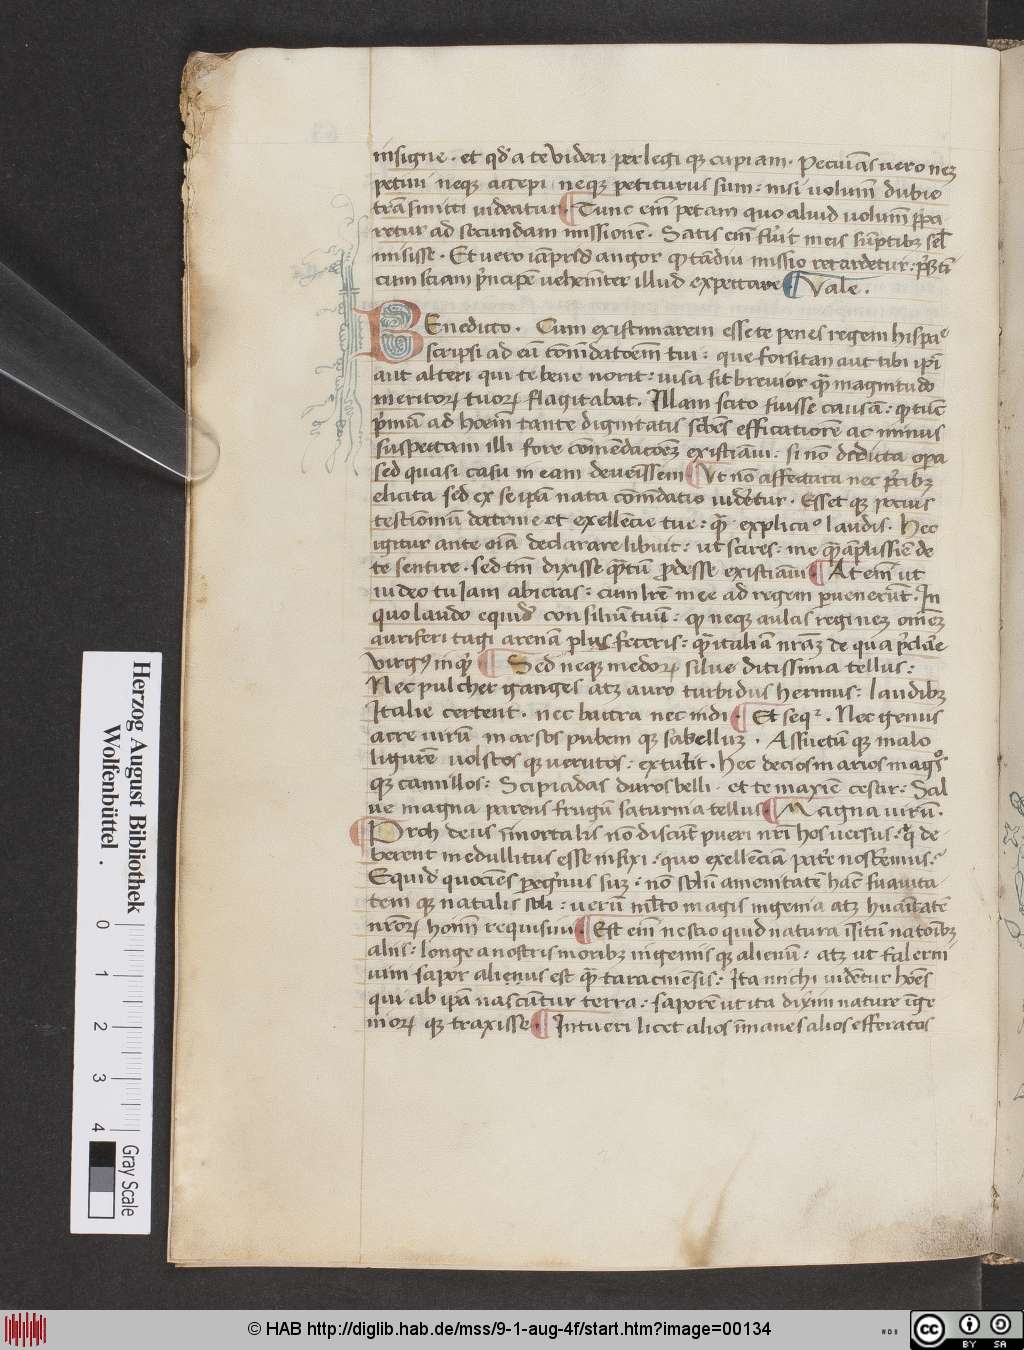 insigne. et qđ a te videri perlegi qꝫ cupiam. Pecuīas vero neqꝫ
petiui neqꝫ accepi neqꝫ petiturus sum: nisi uolumē dubie
trāsmitti uideatur. Tunc em̄ petam quo aliud uolumē p̄pa
retur ad secundam missionē. Satis em̄ fuit meis sūptibꝫ sel̄
misisse. Et uero iāpridē angor ꝙ tādiu missio retardetur: p̄sertī
cum sciam p̄ncipē uehemēter illud expectare Vale.
BEnedicto. Cum existimarem esse te penes regem hispaē
scripsi ad eū cōmēdatōem tui: que forsitan aut tibi ipī
aut alteri qui te bene norit: uisa sit breuior quā magnitudo
meritoꝝ tuoꝝ flagitabat. Illam scito fuisse causā: ꝙ tūc
p̄mū ad hoēm tante dignitatis scbēs efficatiorē ac minus
suspectam illi fore cōmēdacōeꝫ existīaui: si nō dedicta opa
sed quasi casu in eam deuenissem Vt nō affectata nec p̄cibꝫ
elicita sed ex se ipā nata cōmēdatio uidētur. Esset qꝫ pocius
testimoniū doctrine et exellēcie tue: quā explicaᵒ laudis. Hec
igitur ante oīa declarare libuit: ut scires: me quā āplissīe de
te sentire. sed tm̄ dixisse quātū prodesse existīaui At em̄ ut
iudeo tu Iam abieras: cum lr̄e mee ad regem puenerūt. In
quo laudo equidē consiliū tuū: ꝙ neqꝫ aulas regineꝫ om̄eꝫ
auriferi tagi arenā plus feceris: quā italiā nr̄aꝫ de qua p̄clare
virgꝰ inqͥ Sed neqꝫ medoꝝ silue ditissima tellus:
Nec pulcher ganges atqꝫ auro turbidus hermus: laudibꝫ
Italie certent. nec baitra nec indi Et seqᷓ. Nec genus
acre uirū marsos pubem qꝫ sabellaꝫ. Assuetū qꝫ malo
ligurē uolscos qꝫ uerutos: extulit. Hec decios marios magōs
qꝫ camillos: Scipiadas duros belli. et te maxīe cesar: Sal
ue magna parens frugū saturnia tellus Magna uirū.
Proh deus īmortalis nō discūt pueri nrī hos uersus: qͥ de
berent medullitus esse infixi: quo exellēciā patͥe nosceremus:
Equidē quociēs peregͥnus suꝫ. nō solū amenitatē hāc suauita
tem qꝫ natalis soli: uerū mlto magis ingenia atqꝫ huāitatē
nr̄oꝝ hoīm requisiui Est em̄ nescio quid natura īsitū natōibꝫ
aliis: longe a nostris moribꝫ ingeniis qꝫ alienū: atqꝫ ut falerni
uini sapor alienus est quā taracinēsis: Ita michi uidētur hoēs
qui ab ipā nascūtur terra: saporē ut ita dixīm nature īge
nioꝝ qꝫ traxisse Intueri licet alios īmanes alios efferatos
Herzog August Bibliothek
Wolfenbüttel.
0 1 2 3 4
Gray Scale
© HAB http://diglib.hab.de/mss/9-1-aug-4f/start.htm?image=00134
WDB
cc BY SA